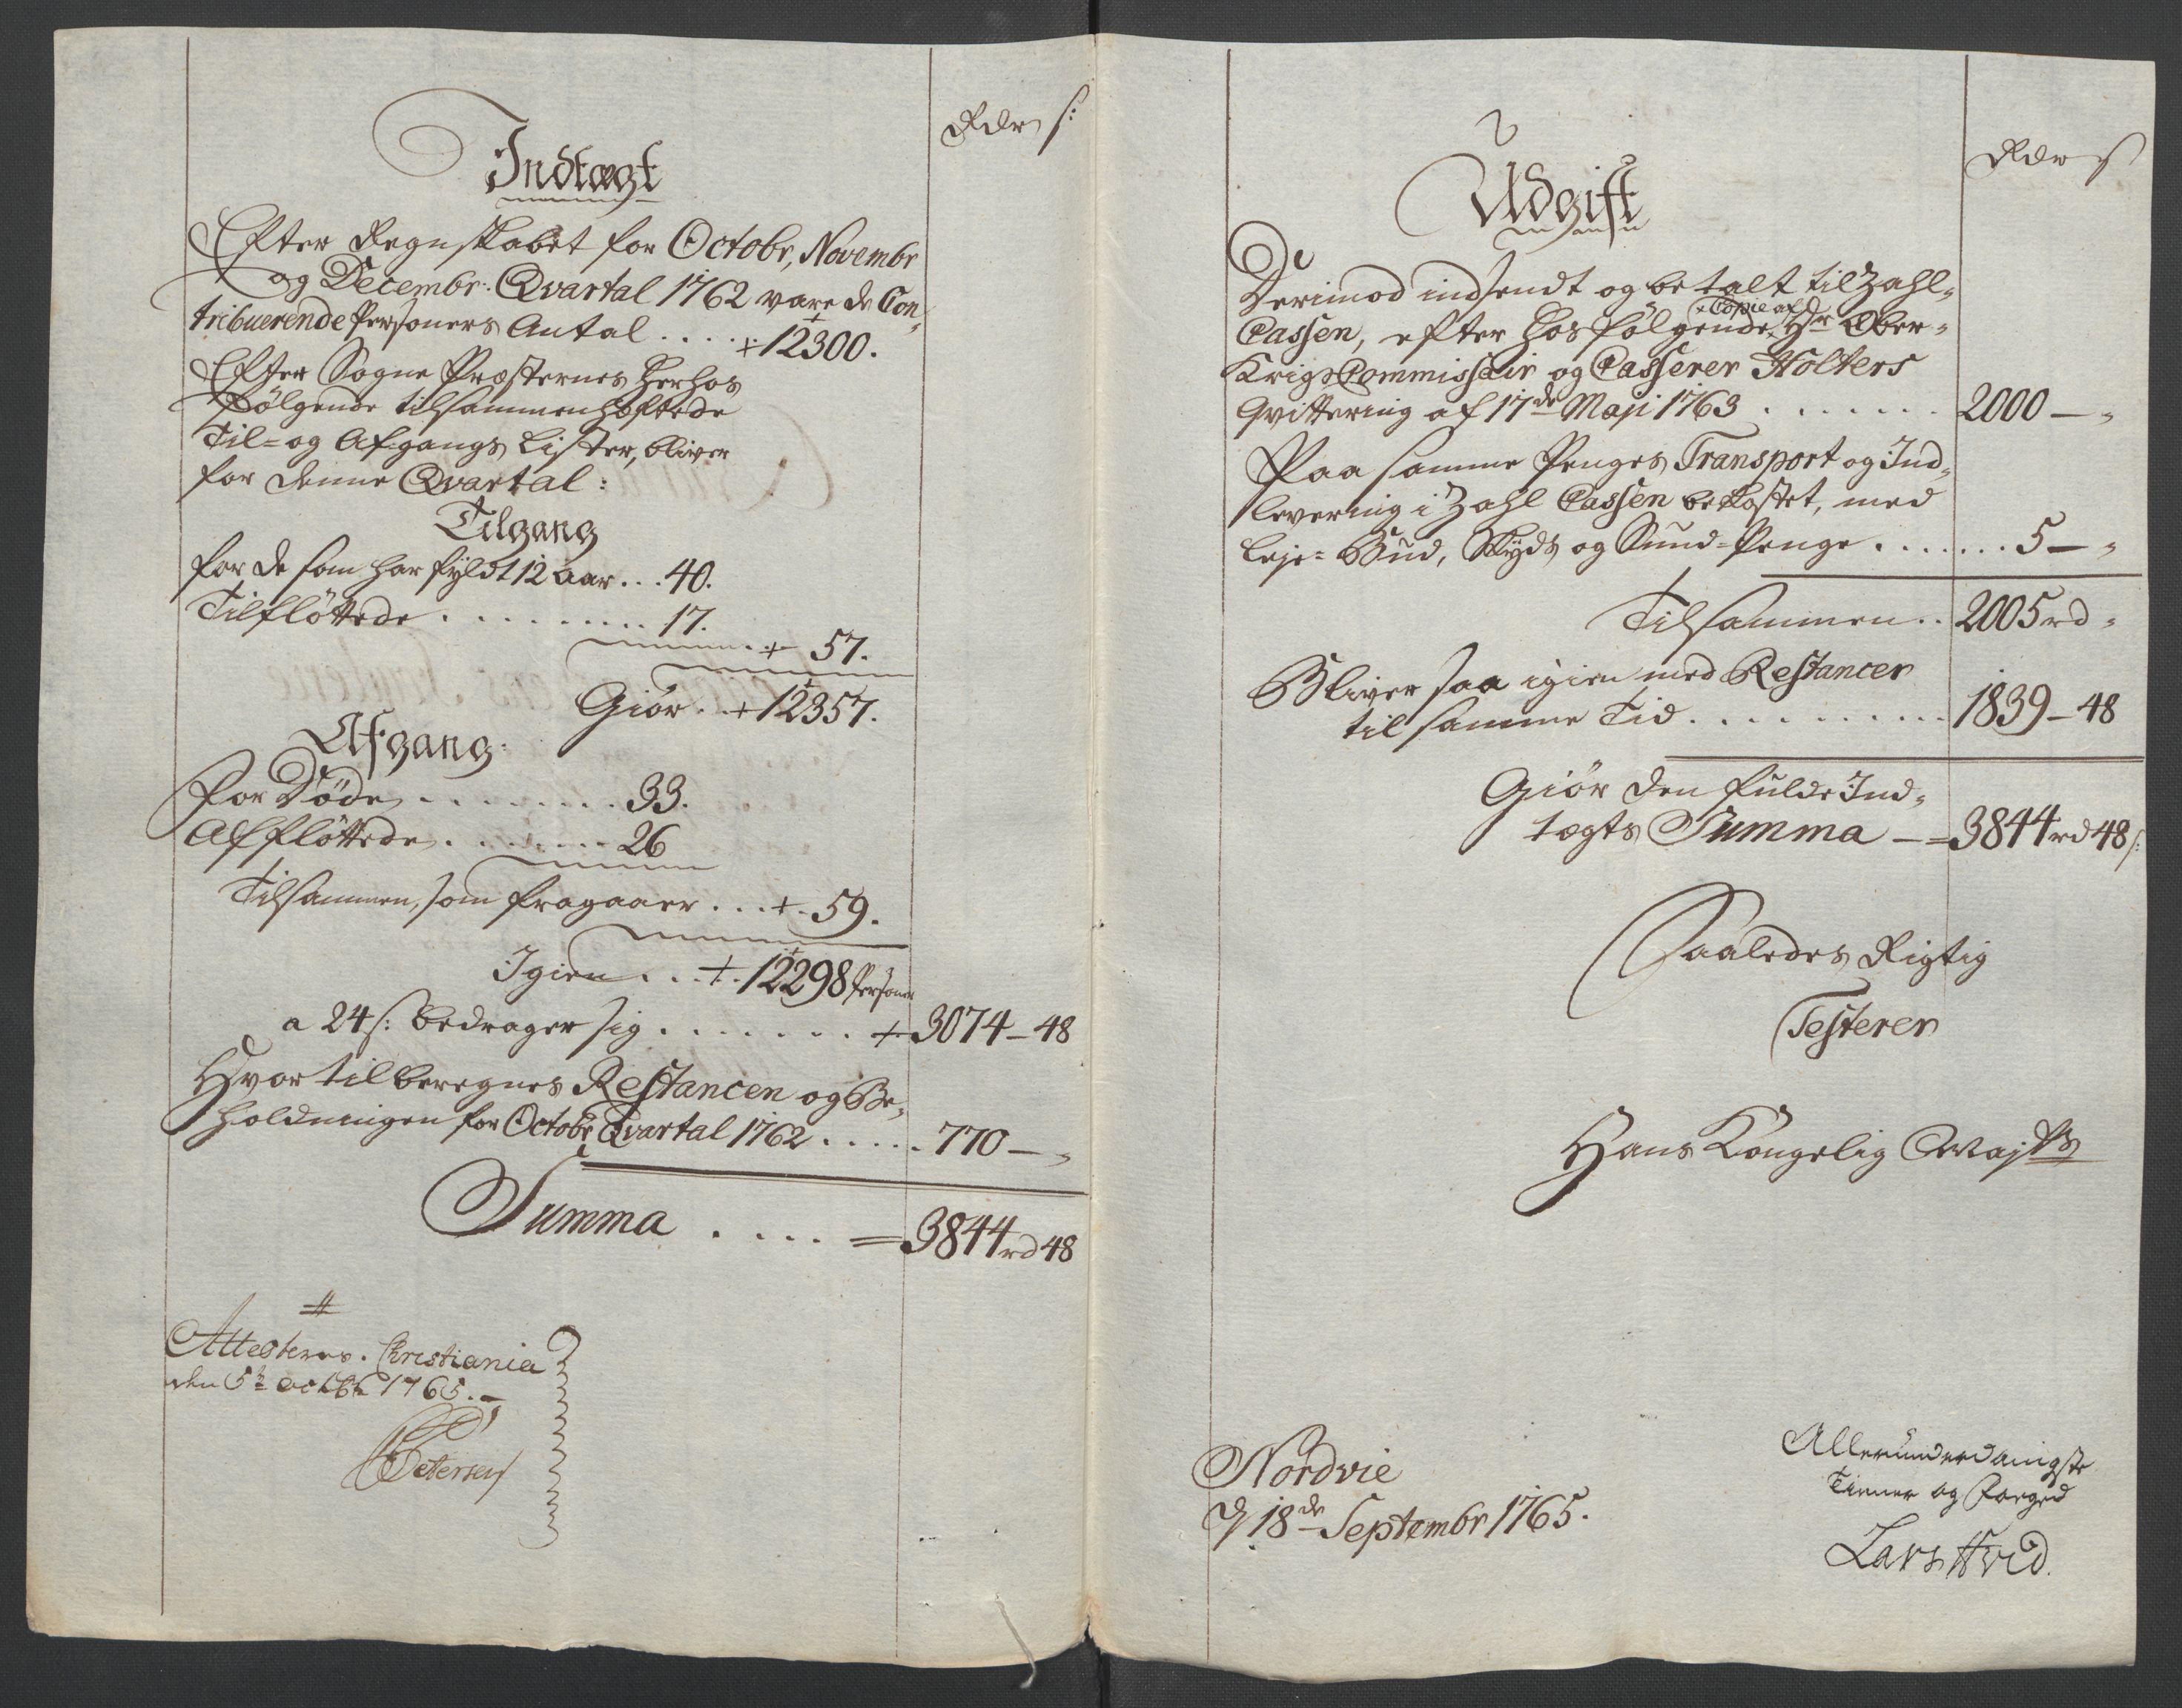 Rdr s:
Indtægt
Efter Regnskabet for Octobr, Novembr
og Decembr: Qvartal 1762 vare de Con-
tribuerende Personers Antal . . . . + 12300.
Efter Sogne Præsternes herhos
følgende tilsammenhæftede
Til- og Afgangs Lister, bliver
for denne Qvartal:
Tilgang
for de som har fyldt 12 aar . . . 40.
Tilfløttede . . . . . . . . . . 17.
+ 57.
Giör . . + 12357.
Afgang:
for Döde . . . . . . . . 33.
Affløttede . . . . . . . 26
Tilsammen, som fragaaer . . . + . 59.
Igien . . . + . 12298 Personer
a 24 s: bedrager sig . . . . . . . + 3074 - 48
Hvortil beregnes Restancen og Be-
holdningen for Octobr Qvartal 1762 . . . . . 770 - "
Summa . . . . = 3844 rd 48
Attesteres. Christiania
den 5te octobr 1765. -
Petersen
Rdr s
Udgift
Derimod indsendt og betalt til Zahl-
Cassen, efter hosfølgende + Copie af Hr Ober-
Krigs Commissair og Casserer Holters
Qvittering af 17de Maji 1763 . . . . . . . 2000 - "
Paa samme Penges Transport og Ind-
levering i Zahl Cassen bekostet, med
Leje- Bud, Skyds og Sund-Penge . . . . . . . 5 - "
Tilsammen . . 2005 rd "
Bliver saa igien med Restancer
til samme Tid . . . . . . . . . . . 1839 - 48
Giör den fulde Ind-
tægts Summa - = 3844 rd 48 s:
Saaledes Rigtig
Testerer
Hans Kongelig Majts
Nordvie
d 18de Septembr 1765.
Allerunderdanigste
Tienner og Foeged
Lars Hvid.